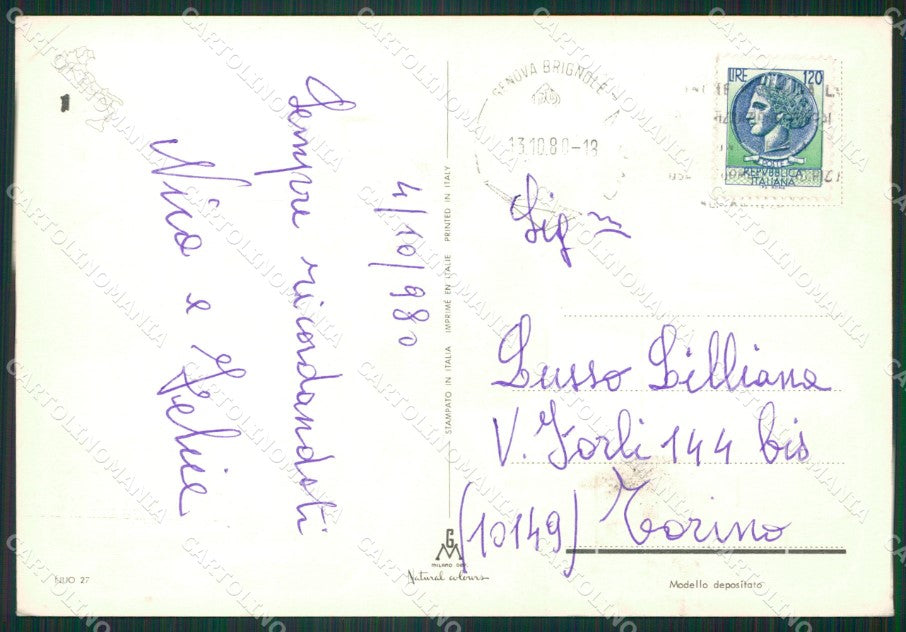 Sempre ricordandoti
4/10/980
Nino e Felicie
GENOVA BRIGNOLE
13.10.80-18
LIRE 120
POSTE
REPVBBLICA
ITALIANA
Sig.
Lusso Lilliana
V. Forlì 144 bis
(10149) Torino
STAMPATO IN ITALIA IMPRIMÉ EN ITALIE PRINTED IN ITALY
GM
MILANO
Natural colours
Modello depositato
27
CARTOLINOMANIA